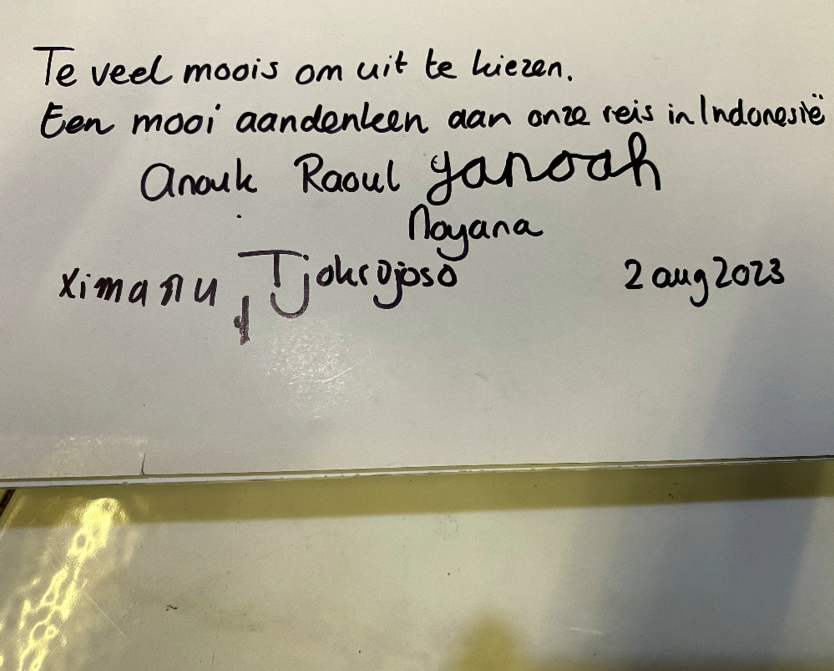 Te veel moois om uit te kiezen.
Een mooi aandenken aan onze reis in Indonesië
Anouk Raoul Yanoah
Noyana
Ximanu Tjokrojoso 2 aug 2023